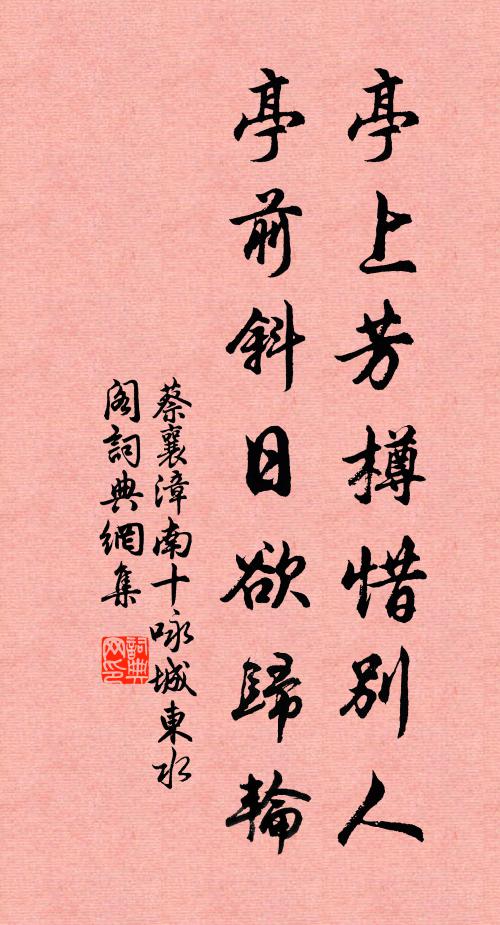 亭上芳樽惜別人
亭前斜日欲歸輪
蔡襄漳南十咏城東水
閣詞典網集
詞典
网印